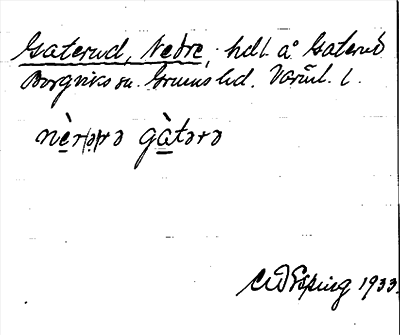 Gaterud, Nedre, hdl. å Gaterud
Borgviks sn. Grums hd. Värml. l.
nè̱r(ə)rə gà̱tərə
1933.